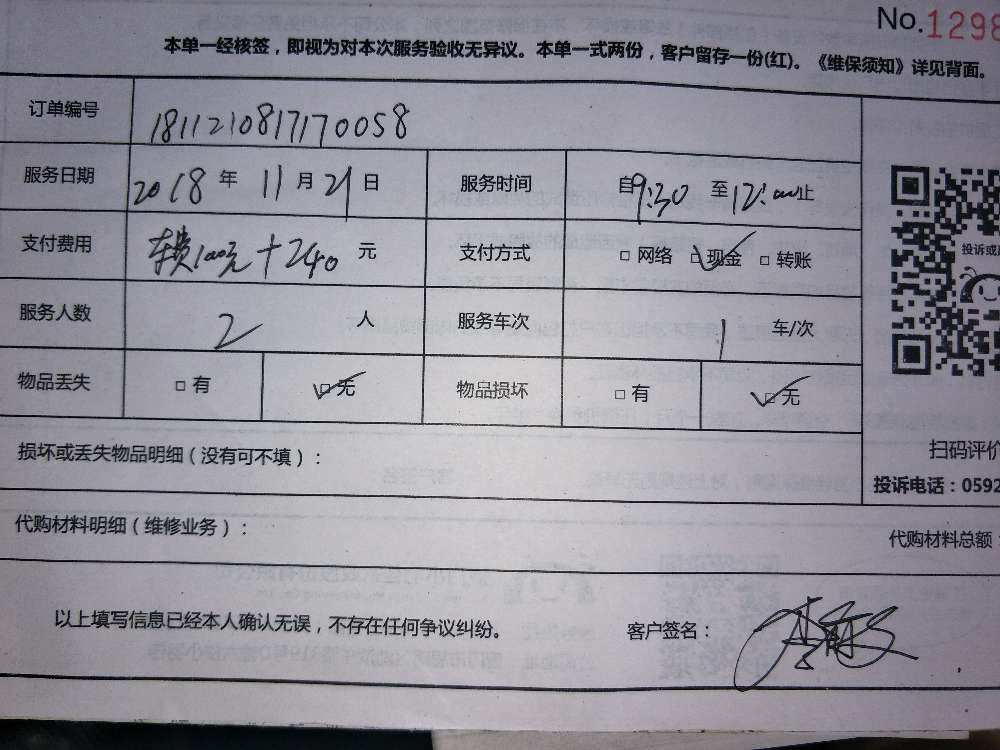 No.1298
本单一经核签，即视为对本次服务验收无异议。本单一式两份，客户留存一份(红)。《维保须知》详见背面。
订单编号 1811210817170058
服务日期 2018 年 11 月 21 日 服务时间 自9:30 至12:00止
支付费用 车费100元+240 元 支付方式 □ 网络 ☑ 现金 □ 转账
服务人数 2 人 服务车次 1 车/次
物品丢失 □ 有 ☑ 无 物品损坏 □ 有 ☑ 无
投诉或
损坏或丢失物品明细（没有可不填）：
扫码评价
投诉电话：0592
代购材料明细（维修业务）：
代购材料总额：
以上填写信息已经本人确认无误，不存在任何争议纠纷。 客户签名：